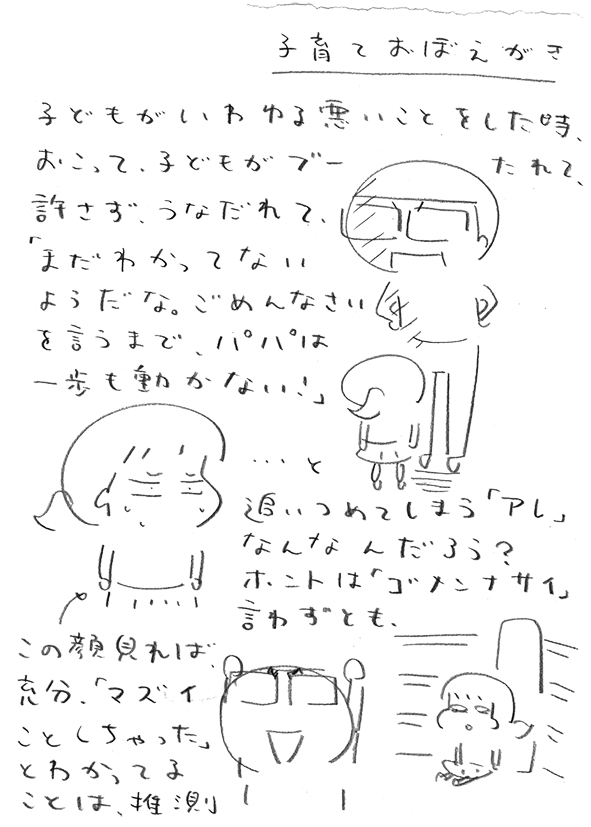 子育ておぼえがき
子どもがいわゆる悪いことをした時、
おこって、子どもがブーたれて、
許さず、うなだれて、
「まだわかってない
ようだな。ごめんなさい
を言うまで、パパは
一歩も動かない!」
…と
追いつめてしまう「アレ」
なんなんだろう?
ホントは「ゴメンナサイ」
言わずとも、
この顔見れば、
充分、「マズイ
ことしちゃった」
とわかってる
ことは、推測